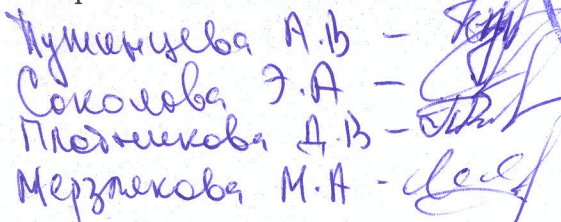 Пужанцева А.В –
Соколова Э.А –
Плотникова Д.В –
Мерзлякова М.А -